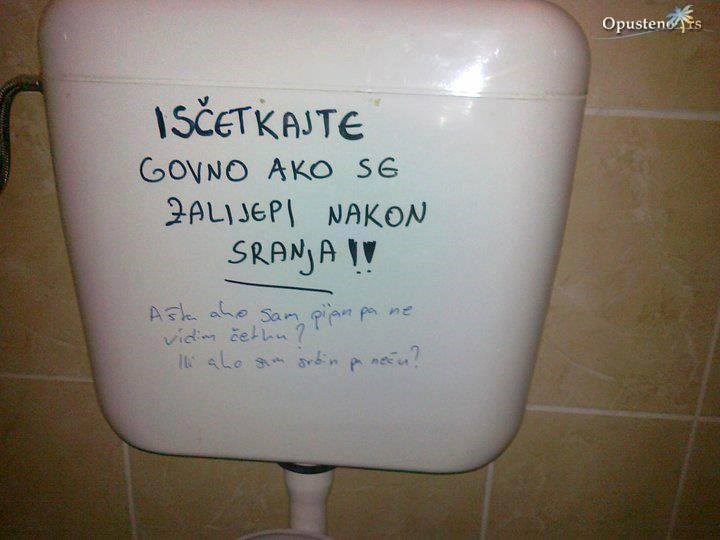 Opusteno.rs
ISČETKAJTE
GOVNO AKO SE
ZALIJEPI NAKON
SRANJA!!
A šta ako sam pijan pa ne
vidim četku?
Ili ako sam srbin pa neću?